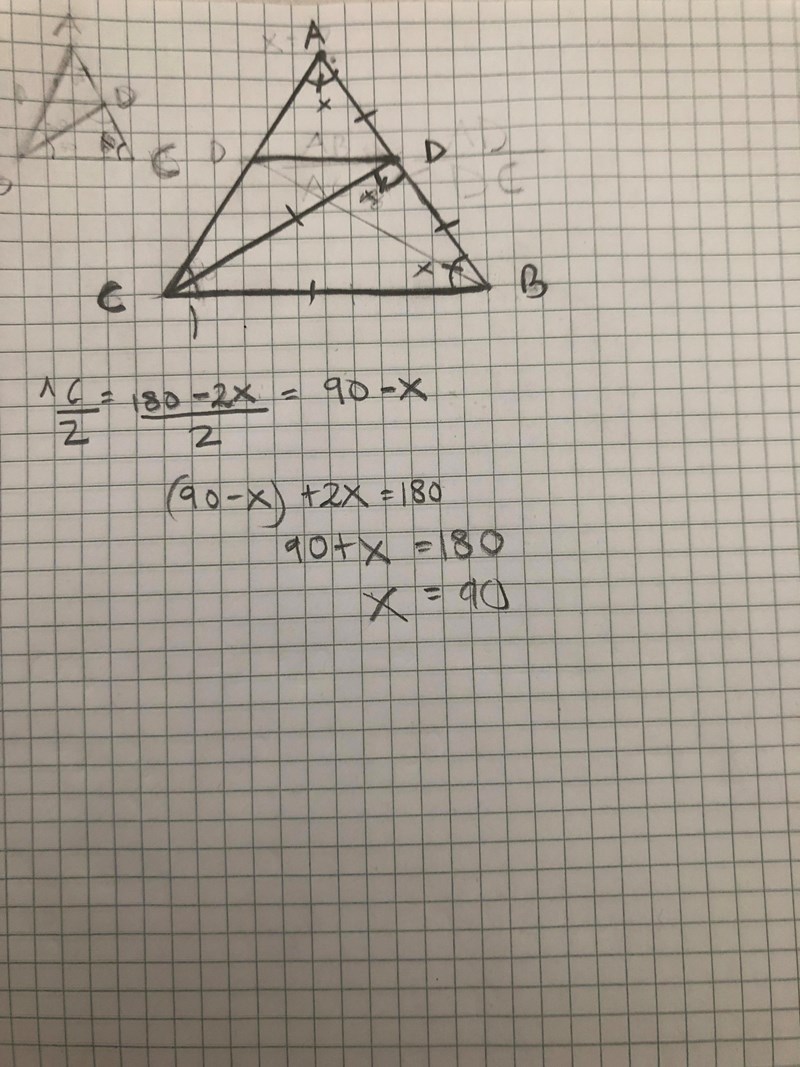 A
A
D
C
D
D
x
x
x
C
B
^C/2 = 180 - 2x / 2 = 90 - x
(90 - x) + 2x = 180
90 + x = 180
x = 90